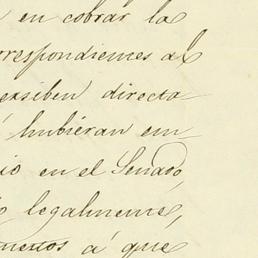 en cobrar la
rrespondientes al
ersiben directa-
hubiéran em-
io en el Senado,
legalmente,
mentos á que